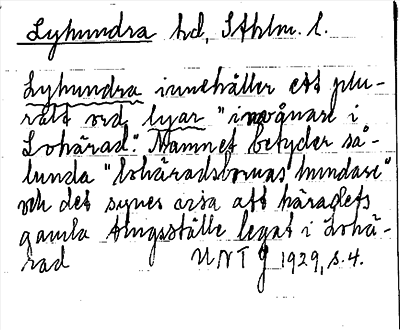 Lyhundra hd, Sthlm. l.
Lyhundra innehåller ett plu-
ralt ord lyar "invånare i
Lohärad". Namnet betyder så-
lunda "lohäradsbornas hundare"
och det synes visa att häradets
gamla tingsställe legat i Lohä-
rad UNT 9 1929, s. 4.